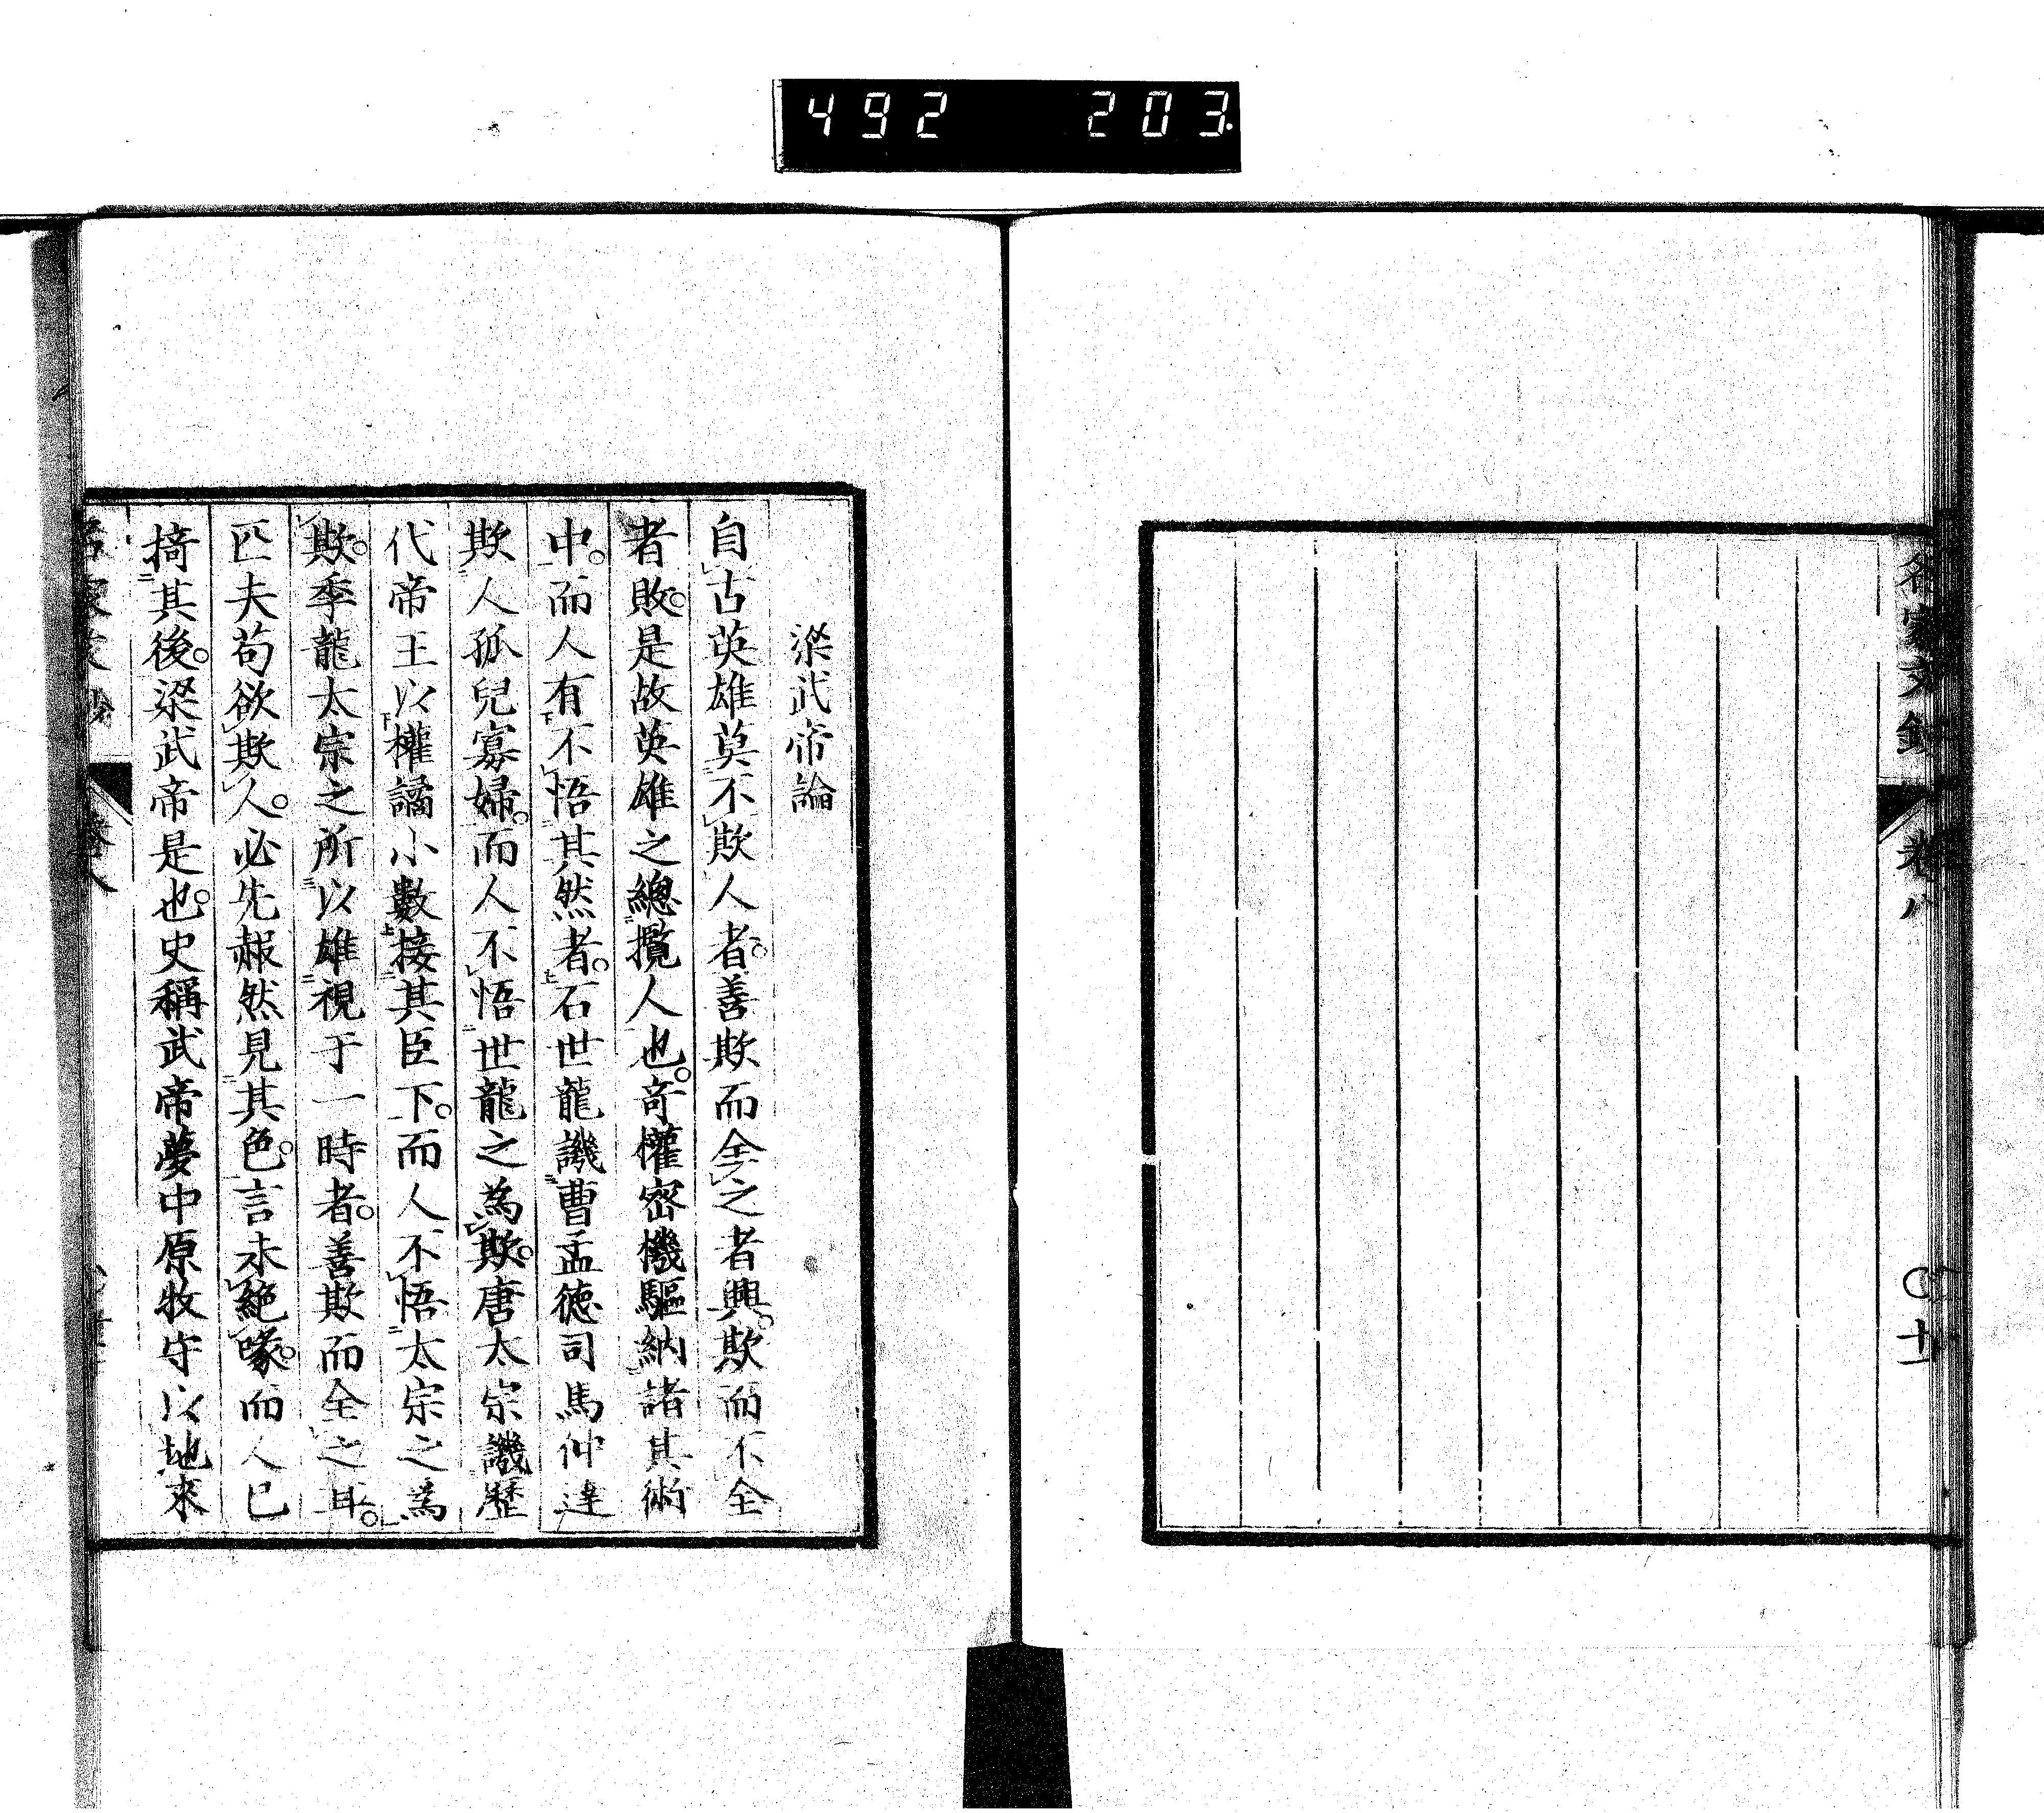 492 203
名家文鈔 卷八 〇十
梁武帝論
自古英雄莫不欺人者。善欺而全之者興。欺而不全
者敗。是故英雄之總攬人也。奇權密機驅納諸其術
中。而人有不悟其然者。石世龍譏曹孟德司馬仲達
欺人孤兒寡婦。而人不悟世龍之為欺。唐太宗譏歷
代帝王以權譎小數接其臣下。而人不悟太宗之為
欺。季龍太宗之所以雄視于一時者。善欺而全之耳。
匹夫苟欲欺人。必先赧然見其色。言未絕喙。而人已
掎其後。梁武帝是也。史稱武帝夢中原牧守以地來